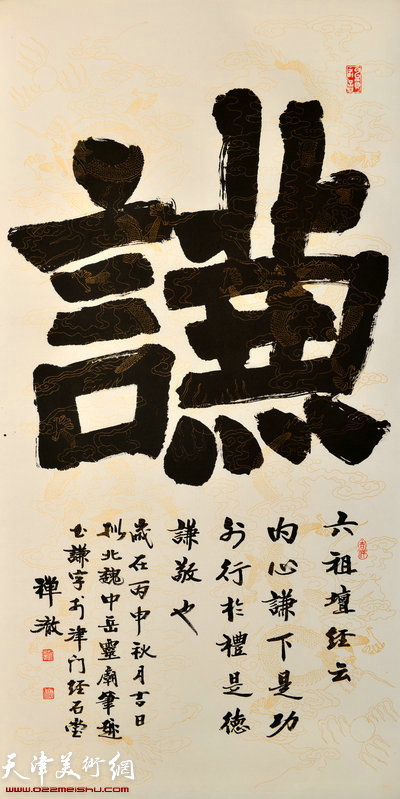 謙
六祖壇经云
内心謙下是功
外行於禮是德
謙敬也
歲在丙申秋月吉日
拟北魏中岳靈廟筆趣
书謙字于津门经石堂
禪澈
天津美術網
www.022meishu.com